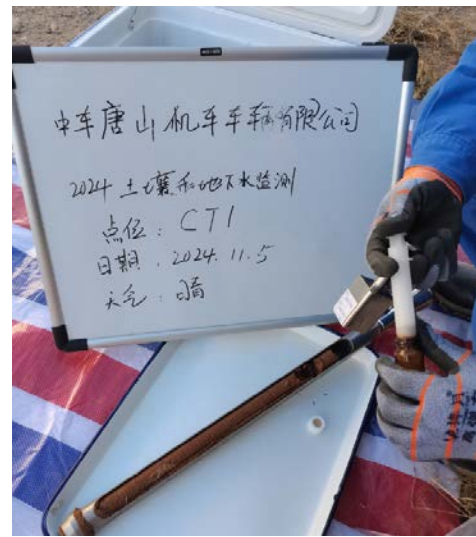 中车唐山机车车辆有限公司
2024 土壤和地下水监测
点位：CT1
日期：2024.11.5
天气：晴